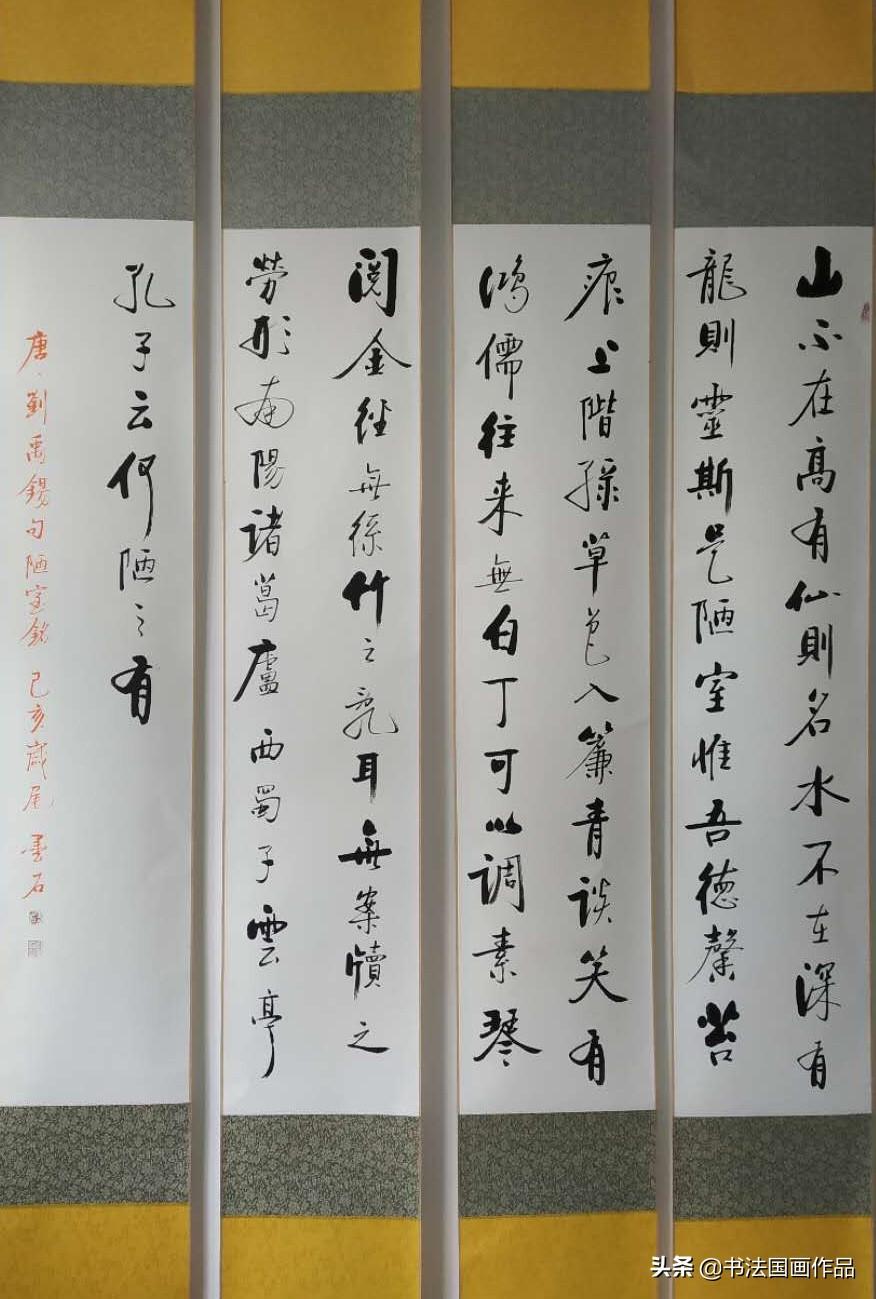 山不在高有仙則名水不在深有
龍則靈斯是陋室惟吾德馨苔
痕上階綠草色入簾青談笑有
鴻儒往来無白丁可以調素琴
閱金經無絲竹之亂耳無案牘之
勞形南陽諸葛廬西蜀子雲亭
孔子云何陋之有
唐、劉禹錫句陋室銘 己亥歲尾 墨石
头条 @书法国画作品